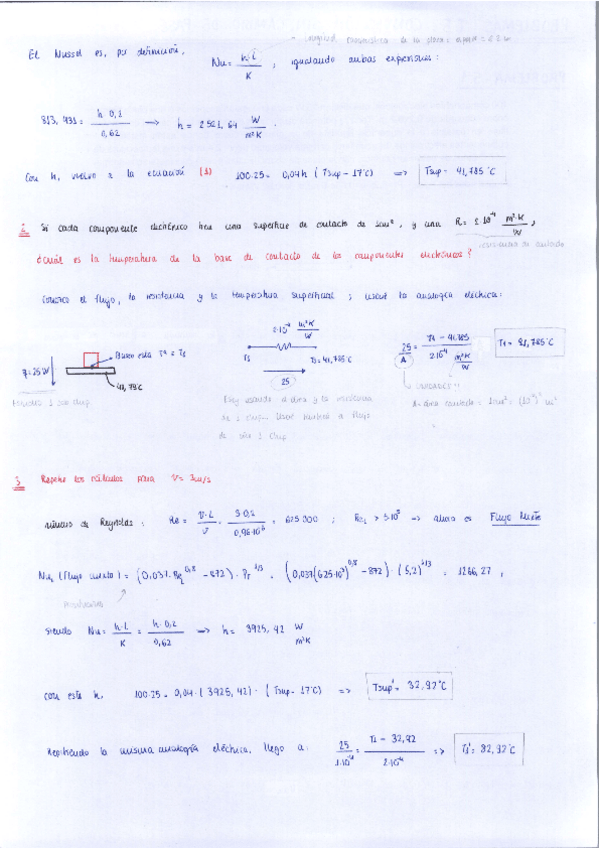 longitud característica de la placa
El Nusselt es, por definición, Nu = h·L / K , igualando ambas expresiones:
813,431 = h·0,2 / 0,62 → h = 2521,64 W / m²K .
Con h, vuelvo a la ecuación (1) 100·25 = 0,04 h (Tsup - 17°C) => Tsup = 41,785 °C
2 Si cada componente eléctrico tiene una superficie de contacto de 1cm², y una R = 2·10⁻⁴ m²·K / W ,
resistencia de contacto
¿cuál es la temperatura de la base de contacto de los componentes electrónicos?
Conozco el flujo, la resistencia y la temperatura superficial ; usaré la analogía eléctrica:
2·10⁻⁴ m²K / W
q = 25 W Busco esta T° = T1 T1 T2 = 41,785°C 25 / A = T1 - 41,785 / 2·10⁻⁴ m²K / W T1 = 91,785°C
41,79°C 25 UNIDADES !!
A = área contacto = 1cm² = (10⁻²)² m²
de 1 chip. Usar también el flujo
de sólo 1 chip
3 Repetir los cálculos para v = 3m/s
número de Reynolds : Re = v·L / ν = 3·0,2 / 0,96·10⁻⁶ = 625.000 ; Re_L > 5·10⁵ => ahora es Flujo Mixto
Nu_L (flujo mixto) = (0,037·Re_L^0,8 - 872) · Pr^1/3 = (0,037(625·10³)^0,8 - 872) · (5,2)^1/3 = 1266,27 ,
siendo Nu = h·L / K = h·0,2 / 0,62 → h = 3925,42 W / m²K
con este h, 100·25 = 0,04·(3925,42) · (Tsup - 17°C) => Tsup' = 32,92°C
Repitiendo la misma analogía eléctrica, llego a : 25 / 1·10⁻⁴ = T1 - 32,92 / 2·10⁻⁴ => T1' = 82,92°C